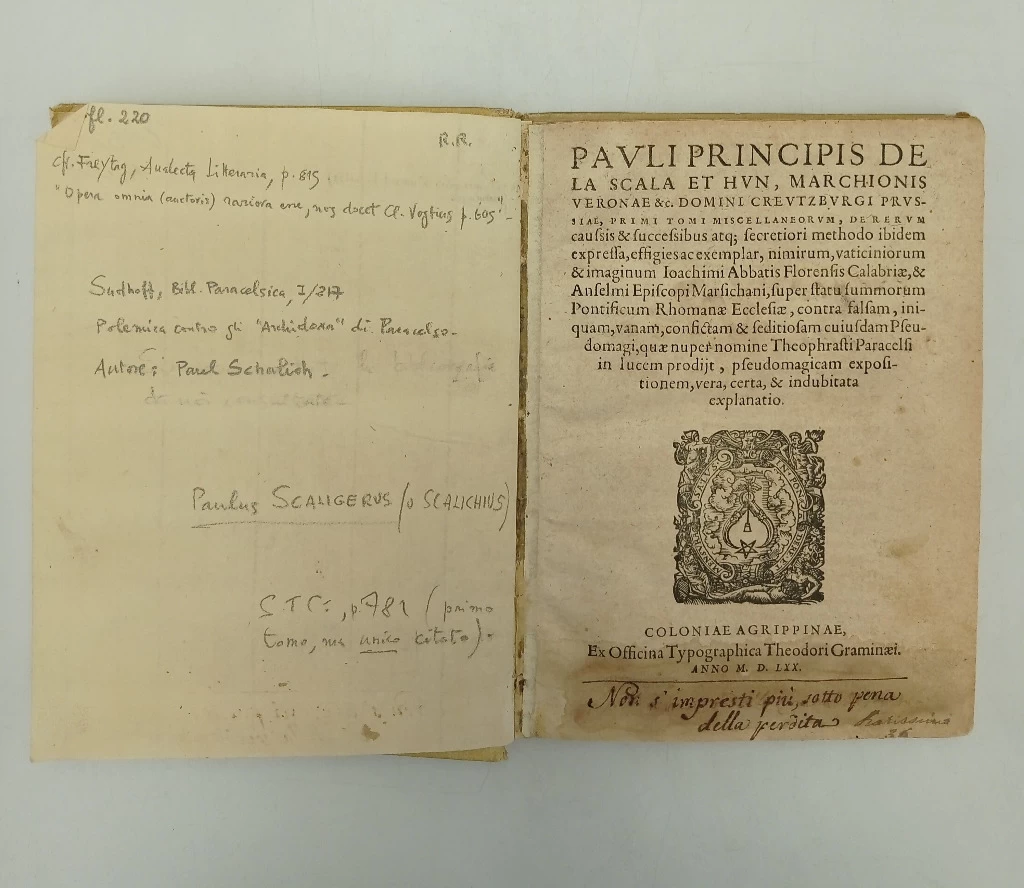 fl. 220
R.R.
cfr. Freytag, Analecta Litteraria, p. 815
"Opera omnia (auctoris) rariora esse, nos docet Cl. Vogtius p. 605"
Sudhoff, Bibl. Paracelsica, I/217
Polemica contro gli "Archidoxa" di Paracelso.
Autore: Paul Schalich.
Paulus SCALIGERUS (o SCALICHIUS)
S.T.C., p. 781 (primo
tomo, ma unico citato).
PAVLI PRINCIPIS DE
LA SCALA ET HVN, MARCHIONIS
VERONAE &c. DOMINI CREVTZBVRGI PRVS-
SIAE, PRIMI TOMI MISCELLANEORVM, DE RERVM
caussis & successibus atq; secretiori methodo ibidem
expressa, effigies ac exemplar, nimirum, vaticiniorum
& imaginum Ioachimi Abbatis Florensis Calabriæ, &
Anselmi Episcopi Marsichani, super statu summorum
Pontificum Rhomanæ Ecclesiæ, contra falsam, ini-
quam, vanam, confictam & seditiosam cuiusdam Pseu-
domagi, quæ nuper nomine Theophrasti Paracelsi
in lucem prodijt, pseudomagicam exposi-
tionem, vera, certa, & indubitata
explanatio.
COLONIAE AGRIPPINAE,
Ex Officina Typographica Theodori Graminæi.
ANNO M. D. LXX.
Non s'impresti più, sotto pena
della perdita rarissimo
36